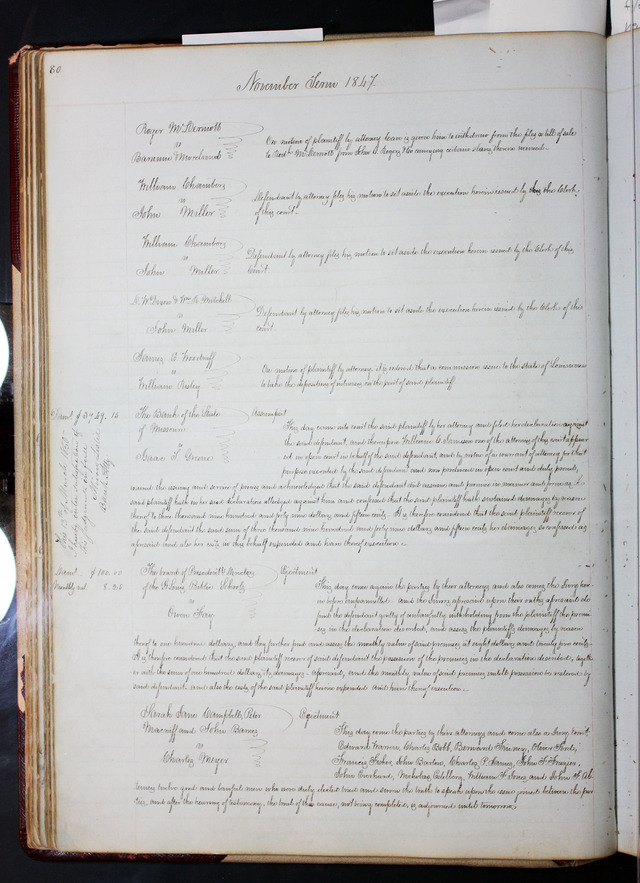 60
November Term 1847.
Roger McDermott
vs
Baranne & Marchand
On motion of plaintiff by attorney leave is given him to withdraw from the files a bill of sale
to McDermott from John A. & Co conveying certain slaves therein named.
William Chambers
vs
John Miller
Defendant by attorney files his motion to set aside the execution herein issued by the Clerk
of this court.
William Chambers
vs
John Miller
Defendant by attorney files his motion to set aside the execution herein issued by the Clerk of this
Court.
N. W. Dixon & Wm. C. Mitchell
vs
John Miller
Defendant by attorney files his motion to set aside the execution herein issued by the Clerk of this
court.
James A. Woodruff
vs
William Risley
On motion of plaintiff by attorney it is ordered that a commission issue to the State of Tennessee
to take the deposition of witnesses on the part of said plaintiff
Dam'l $3949.15
The Bank of the State
of Missouri
vs
Isaac H. Greene
Assumpsit
This day comes into court the said plaintiff by her attorney and files her declaration against
the said defendant, and thereupon William A. one of the attorneys of this court appear
ed in open court in behalf of the said defendant, and by virtue of a warrant of attorney for that
purpose executed by the said defendant and now produced in open court and duly proved,
waived the issuing and service of process and acknowledged that the said defendant did assume and promise in manner and form as the
said plaintiff hath in her said declaration alledged against him and confessed that the said plaintiff hath sustained damages by reason
thereof to three thousand nine hundred and forty nine dollars and fifteen cents. It is therefore considered that the said plaintiff recover of
the said defendant the said sum of three thousand nine hundred and forty nine dollars and fifteen cents her damages so confessed as
aforesaid and also her costs in this behalf expended and have thereof execution.
Dam'l $100.00
Monthly val. 8.25
The board of President & Directors
of the St. Louis Public Schools
vs
Owen Fary
Ejectment
This day come again the parties by their attorneys and also comes the Jury here
in before empannelled and the Jurors aforesaid upon their oaths aforesaid do
find the defendant guilty of unlawfully withholding from the plaintiff the premi
ses in the declaration described, and assess the plaintiffs damages by reason
thereof to one hundred dollars, and they further find and assess the monthly value of said premises at eight dollars and twenty five cents.
It is therefore considered that the said plaintiff recover of said defendant the possession of the premises in the declaration described, togeth
er with the sum of one hundred dollars its damages aforesaid, and the monthly value of said premises until possession be restored by
said defendant, and also the costs of the said plaintiff herein expended and have thereof execution.
Sarah Jane Campbell, Peter
and John Barnes
vs
Charles Meyer
Ejectment
This day come the parties by their attorneys and come also a Jury to wit,
Edward Warren, Charles Bobb, Bernard Finney, Oliver
Francis John Barlow, Charles P. James, John F. Frazer,
John Nicholas William F. Jones, and John A. Ab
twelve good and lawful men who were duly elected tried and sworn the truth to speak upon the issue joined between the par
ties, and after the hearing of testimony, the trial of this cause, not being completed, is adjourned until tomorrow.